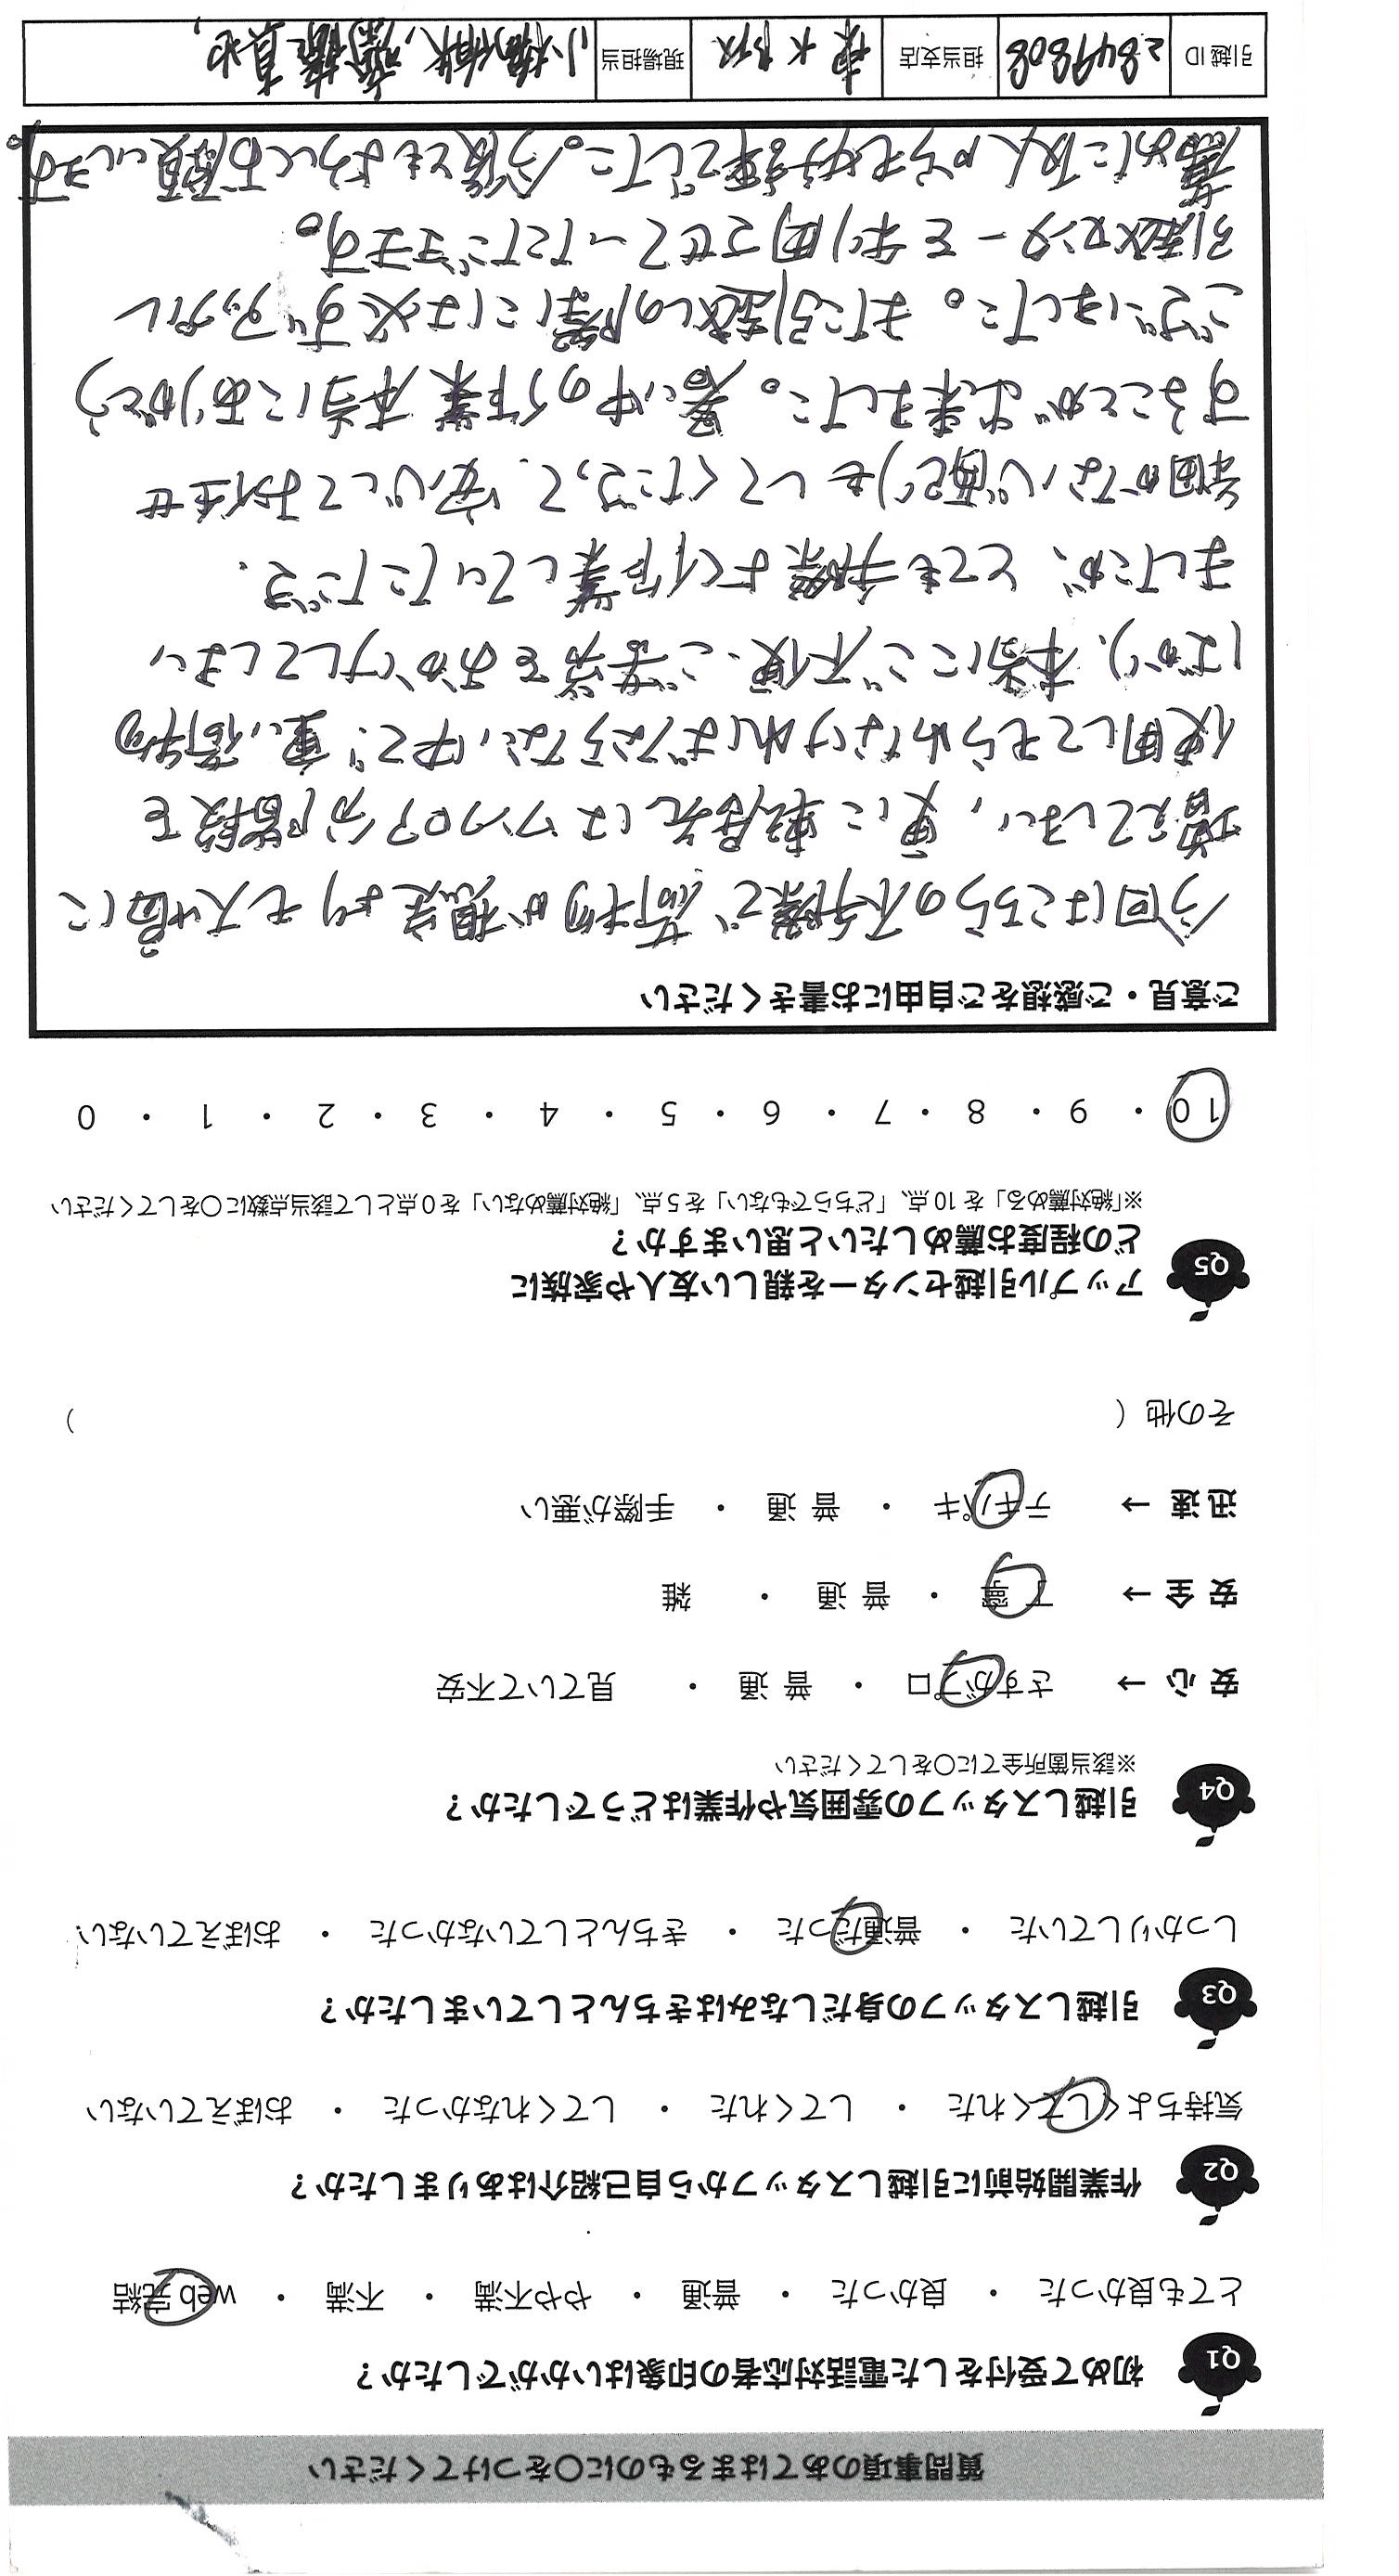 質問事項のあてはまるものに〇をつけてください
Q1 初めて受付をした電話対応者の印象はいかがでしたか？
とても良かった ・ 良かった ・ 普通 ・ やや不満 ・ 不満 ・ web完結
Q2 作業開始前に引越しスタッフから自己紹介はありましたか？
気持ちよくしてくれた ・ してくれた ・ してくれなかった ・ おぼえていない
Q3 引越しスタッフの身だしなみはきちんとしていましたか？
しっかりしていた ・ 普通だった ・ きちんとしていなかった ・ おぼえていない
Q4 引越しスタッフの雰囲気や作業はどうでしたか？
※該当箇所全てに〇をしてください
安心 → さすがプロ ・ 普通 ・ 見ていて不安
安全 → 丁寧 ・ 普通 ・ 雑
迅速 → テキパキ ・ 普通 ・ 手際が悪い
その他（ ）
Q5 アップル引越センターを親しい友人や家族に
どの程度お薦めしたいと思いますか？
※「絶対薦める」を10点、「どちらでもない」を5点、「絶対薦めない」を0点として該当点数に〇をしてください
10 ・ 9 ・ 8 ・ 7 ・ 6 ・ 5 ・ 4 ・ 3 ・ 2 ・ 1 ・ 0
ご意見・ご感想をご自由にお書きください
今回はこちらの不手際で荷物が想定よりも大幅に
増えてしまい、更に転居先はワンフロア分階段を
使用してもらわなければならない中で、重い荷物
ばかり、本当にご不便、ご苦労をおかけしてしまい
ましたが、とても手際よく作業していただき、
細かな心配りもしてくださって、安心してお任せ
することが出来ました。暑い中の作業本当にありがとう
ございました。また引越しの際には必ずアップル
引越センターを利用させていただきます。
薦めた友人からも好評でした。今後ともよろしくお願いします。
引越ID 2849808 担当支店 東大阪 現場担当 小楠 真也